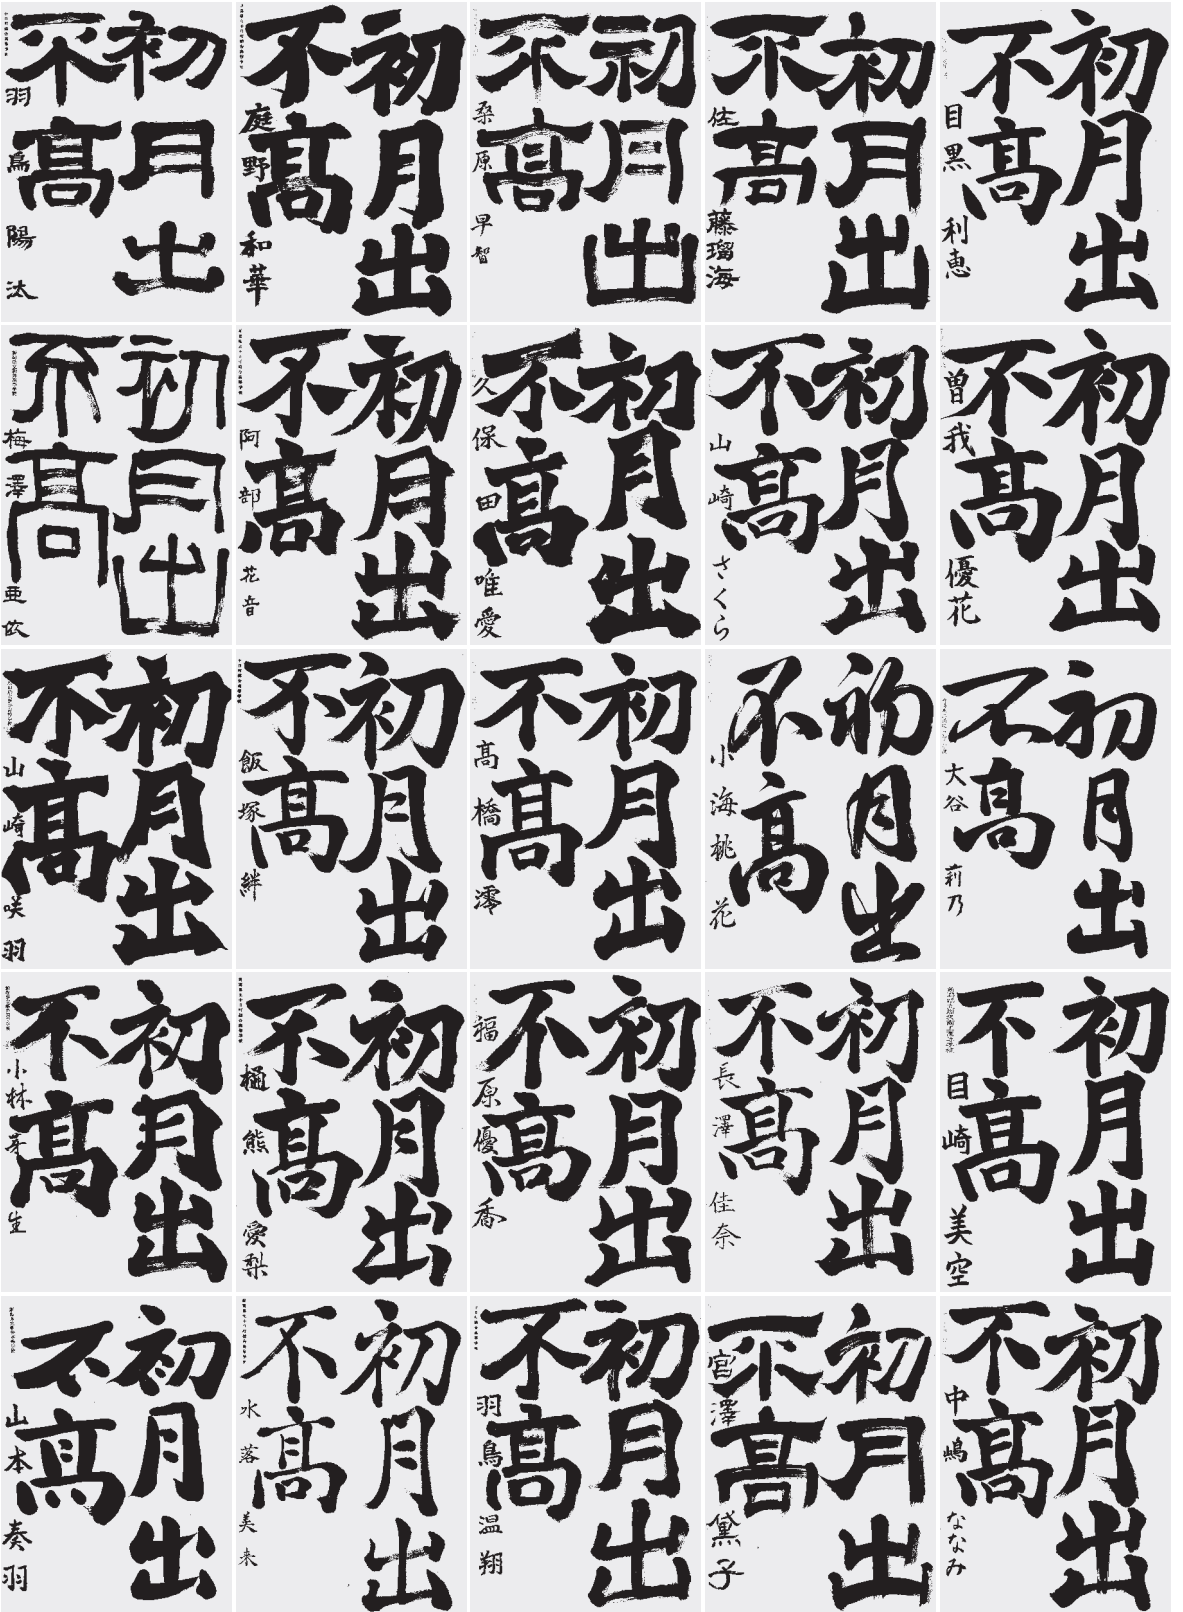 初月出
不高
羽鳥陽汰
初月出
不高
庭野和華
初月出
不高
桑原早智
初月出
不高
佐藤瑠海
初月出
不高
目黒利恵
初月出
不高
梅澤亜依
初月出
不高
阿部花音
初月出
不高
久保田唯愛
初月出
不高
山崎さくら
初月出
不高
曽我優花
初月出
不高
山崎咲羽
初月出
不高
飯塚絆
初月出
不高
高橋澪
初月出
不高
小海桃花
初月出
不高
大谷莉乃
初月出
不高
小林芽生
初月出
不高
樋熊愛梨
初月出
不高
福原優香
初月出
不高
長澤佳奈
初月出
不高
目崎美空
初月出
不高
山本奏羽
初月出
不高
水落美来
初月出
不高
羽鳥温翔
初月出
不高
宮澤黛子
初月出
不高
中嶋ななみ